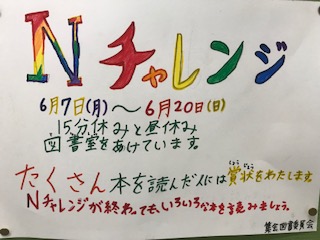 Nチャレンジ
6月7日(月)〜6月20日(日)
15分休みと昼休み
図書室をあけています。
たくさん本を読んだ人には賞状をわたします
しょう じょう
Nチャレンジが終わっても、いろいろな本を読みましょう。
図書委員会